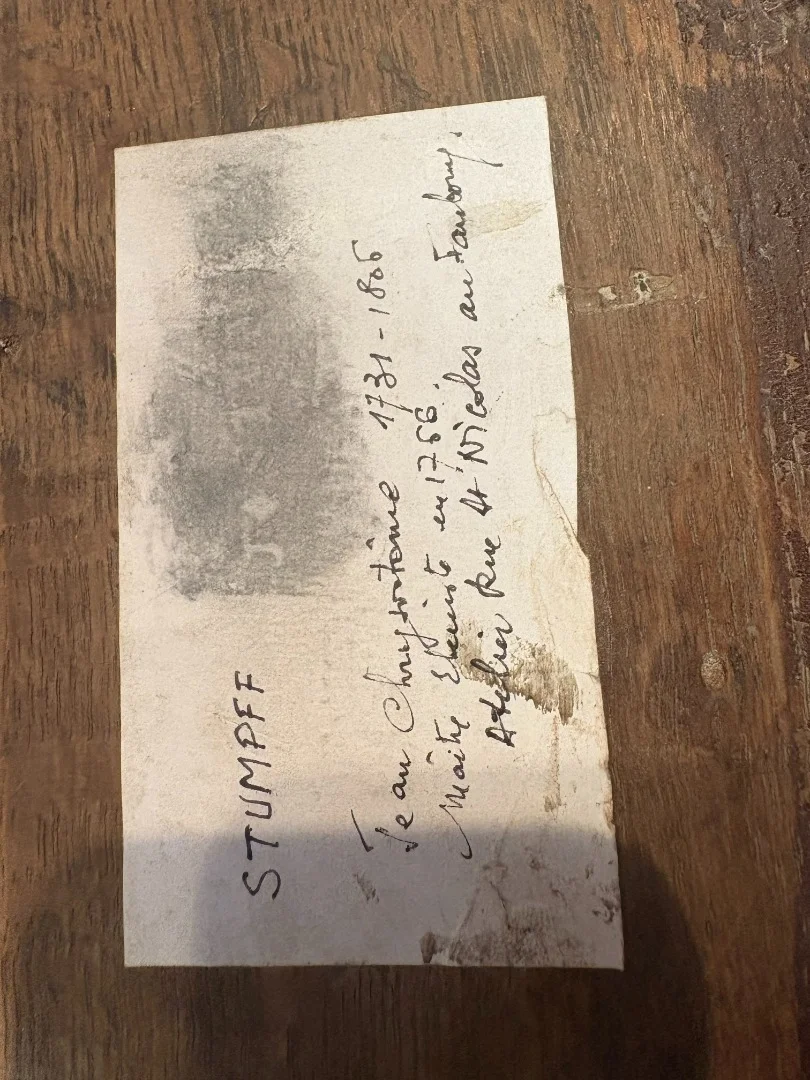 STUMPFF
Jean Chrysostôme 1731-1806
Maître Ebéniste en 1766.
Atelier Rue St Nicolas au Faubourg.